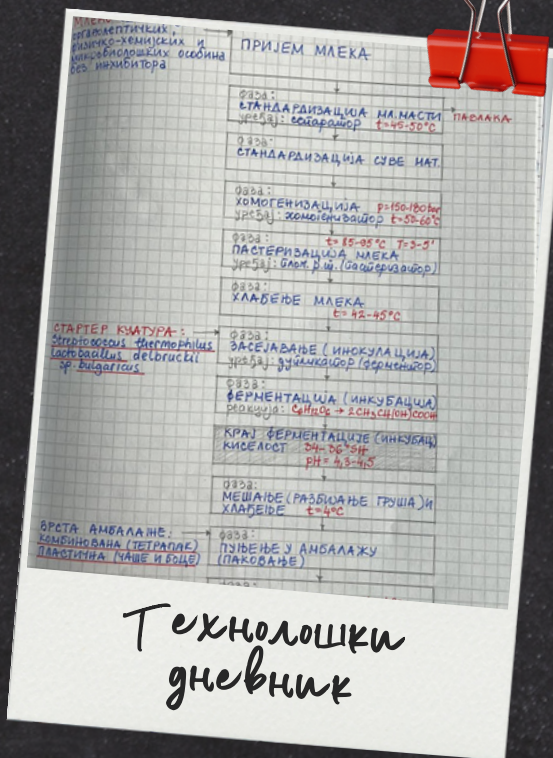 МЛЕКО
органолептичких,
физичко-хемијских и
микробиолошких особина
без инхибитора
ПРИЈЕМ МЛЕКА
фаза:
СТАНДАРДИЗАЦИЈА МЛ. МАСТИ
уређај: сепаратор t=45-50°C
ПАВЛАКА
фаза:
СТАНДАРДИЗАЦИЈА СУВЕ МАТ.
фаза:
ХОМОГЕНИЗАЦИЈА p=150-180bar
уређај: хомогенизатор t=50-60°C
фаза: t=85-95°C T=3-5'
ПАСТЕРИЗАЦИЈА МЛЕКА
уређај: плоч. р.т. (пастеризатор)
фаза:
ХЛАЂЕЊЕ МЛЕКА
t=42-45°C
СТАРТЕР КУЛТУРА:
Streptococcus thermophilus
lactobacillus delbruckii
sp. bulgaricus
фаза:
ЗАСЕЈАВАЊЕ (ИНОКУЛАЦИЈА)
уређај: дупликатор (ферментор)
фаза:
ФЕРМЕНТАЦИЈА (ИНКУБАЦИЈА)
реакција: C6H12O6 → 2CH3CH(OH)COOH
КРАЈ ФЕРМЕНТАЦИЈЕ (ИНКУБАЦ)
КИСЕЛОСТ 34-36°SH
pH = 4,3-4,5
фаза:
МЕШАЊЕ (РАЗБИЈАЊЕ ГРУША) И
ХЛАЂЕЊЕ t=4°C
ВРСТА АМБАЛАЖЕ:
КОМБИНОВАНА (ТЕТРАПАК)
ПЛАСТИЧНА (ЧАШЕ И БОЦЕ)
фаза:
ПУЊЕЊЕ У АМБАЛАЖУ
(ПАКОВАЊЕ)
Технолошки
дневник